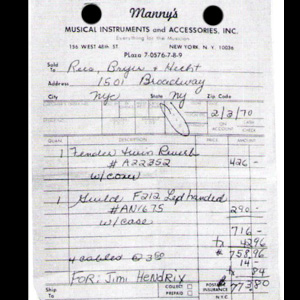 Manny's
MUSICAL INSTRUMENTS and ACCESSORIES, INC.
Everything for the Musician
156 WEST 48th ST. NEW YORK, N. Y. 10036
PLaza 7-0576-7-8-9
Sold To Rees, Bryer & Hecht
1501 Broadway
City NYC State NY Zip Code
2/2/70
QUANS. DESCRIPTION
CASH
ACCOUNT CHARGE
1 Fender Twin Reverb 426 -
#A22352
w/cover
1 Guild F212 Left handed
#AN1675 290 -
w/case
716 -
42 96
758 96
4 cables @ 3 50 14 -
84
FOR: Jimi HENDRIX 773 80
Ship To
COLLECT
PREPAID
POSTAGE
INSURANCE
N.Y.C.